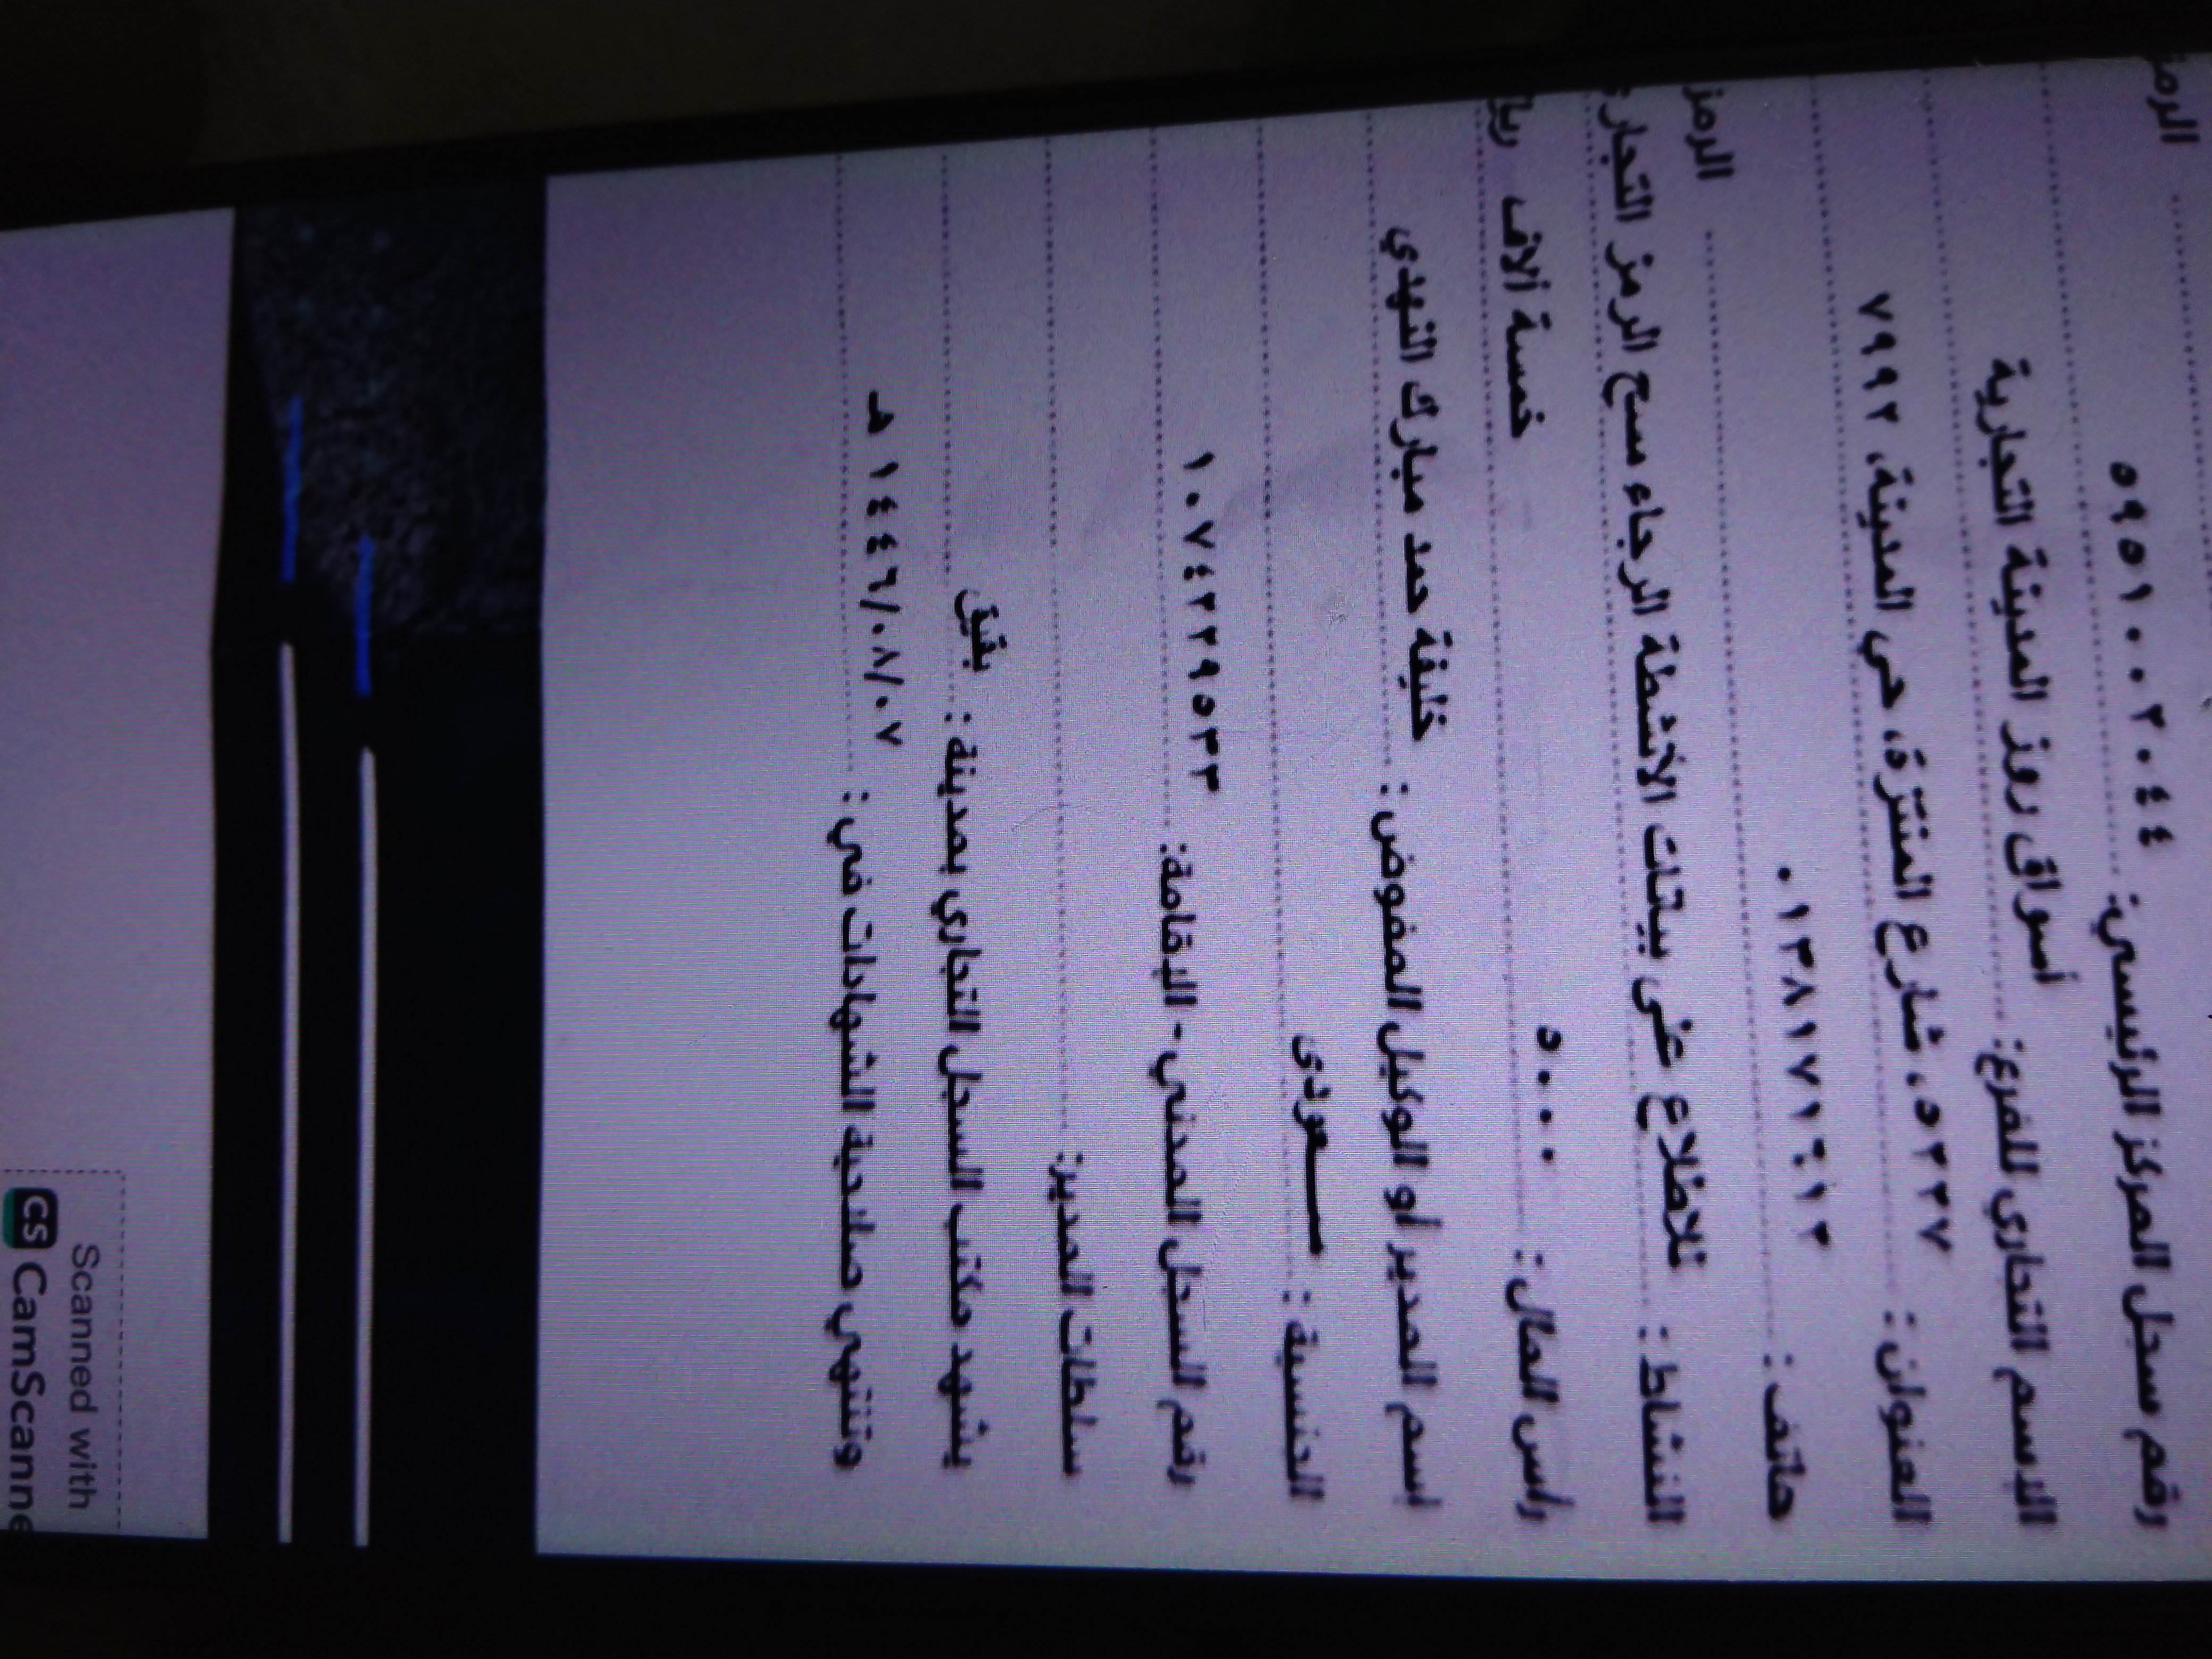 الرمز
رقم سجل المركز الرئيسي: ٥٩٥١٠٠٢٠٤٤
الاسم التجاري للفرع: أسواق روز المدينة التجارية
العنوان : ٥٢٢٧، شارع المنتزة، حي المدينة، ٧٩٩٢
هاتف : ٠١٣٨١٧١٦١٢ الرمز
النشاط : للاطلاع على بيانات الأنشطة الرجاء مسح الرمز التجار
رأس المال : ٥٠٠٠ خمسة آلاف ريال
اسم المدير أو الوكيل المفوض : خليفة حمد مبارك النهدي
الجنسية : سعودى
رقم السجل المدني - الإقامة: ١٠٧٤٢٢٩٥٣٣
سلطات المدير:
يشهد مكتب السجل التجاري بمدينة : بقيق
وتنتهي صلاحية الشهادات في : ١٤٤٦/٠٨/٠٧ هـ
Scanned with
CS CamScanne